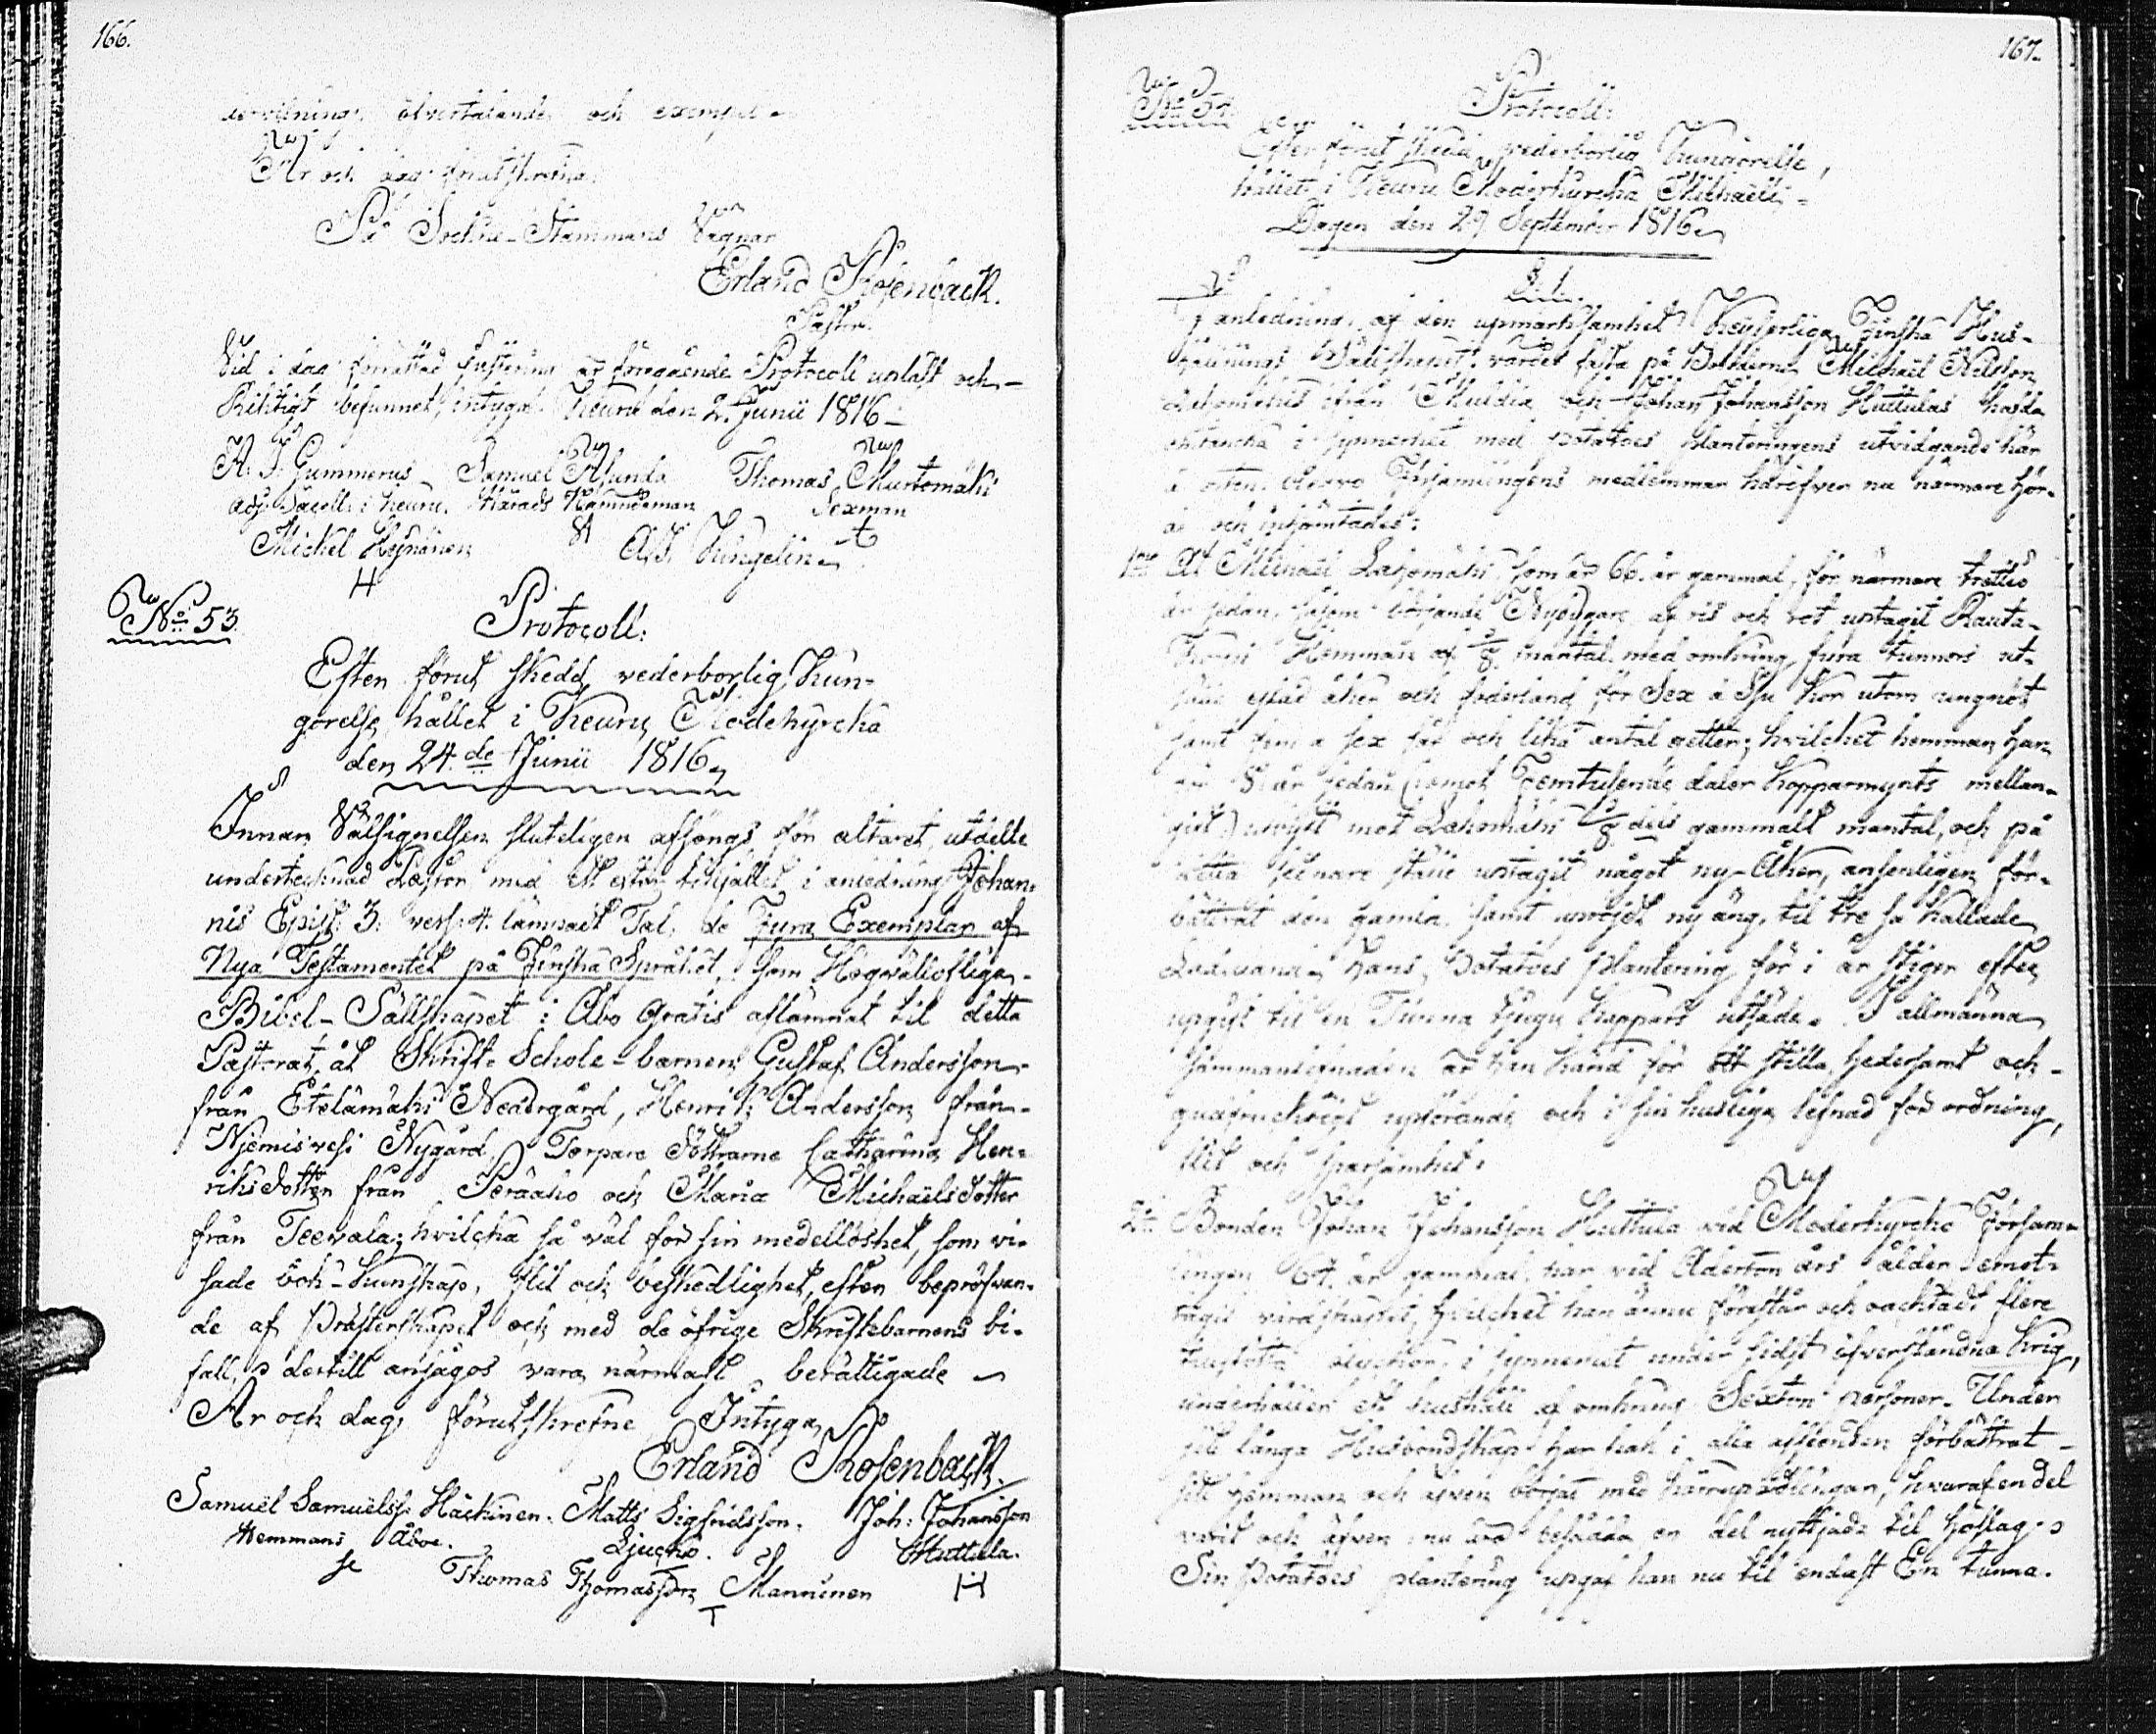 166.
öfvertalande och exempel
År och dag förutskrefne.
På Sockne-Stämmans Vägnar
Erland Rosenback.
Pastor.
Vid i dag förrättad justering är föregående Protocoll upläst och
Riktigt befunnet, intygar Keuru den 2. Junii 1816
A. J. Gummerus Samuel Asunda Thomas Murtomäki
Adj. Sacell: i Keuru. Härads Nämndeman Sexman
Michel Hejnänen A. J. Tungelin
H
No 53.
Protocoll:
Efter förut skedd vederborlig Kun-
görelse, hållet i Keuru Moderkyrcka
den 24.de Junii 1816
Innan Välsignelsen sluteligen afsöngs för altaret, utdelte
undertecknad Pastor med ett i anledning Johan-
nis Epist: 3: vers: 4. lämpadt Tal, de Fyra Exemplar af
Nya Testamentet på Finska Språket, som Högvälloflige
Bibel-Sällskapet i Åbo Gratis aflämnat til detta
Pastorat, åt Skrift-Schole-barnen Gustaf Andersson
från Etelämäki Neadrgård, Henrik Andersson från
Niemisvesi Nygård, Torpare Döttrarne Catharina Hen-
riksdotter från Peräaho och Maria Michaelsdotter
från Teevala; hvilcka så väl för sin medellöshet, som vi-
sade bok-kunskap, flit och beskedlighet, efter bepröfvan-
de af Prästerskapet och med de öfrige Skriftebarnens bi-
fall, dertill ansågos vara närmast berättigade
År och dag, förutskrefne Intyga
Erland Rosenback.
Samuel Samuelss: Häckinen. Matts Sigfridsson. Joh: Johansson
Hemmans Åboe. Ljucko. Huttula.
Thomas Thomasson Manninen H
T
167.
Protocoll:
Efter förut skedd vederborlig Kungörelse,
hållet i Keuru Moderkyrcka Michaeli-
Dagen den 29 September 1816
§.1.
I anledning af den upmärksamhet Kejserliga Finska Hus-
hållnings Sällskapet värdes fästa på Bönderne Michael Nilsson
Lahomäkis ifrån Muldia och Johan Johansson Huttulas hafda
omtancka i synnerhet med potatoes planteringens utvidgande här
å orten, blefvo Församlingens medlemmar häröfver nu närmare hör-
da och inhämtades:
1mo At Michael Lahomäki, som är 66. år gammal, för närmare trettio
år sedan, såsom börjande Nybyggare af ris och rot uptagit Rauta-
Hemman af 5/8 mantal med omkring fyra tunnors ut-
säde åker och foderland för Sex á Sju kor utom ungnöt
samt fem a sex får och lika antal getter; hvilcket hemman han
år sedan (emot Femtusende daler Kopparmynts mellan-
gift) utbytt mot Lahomäki 5/8 dels gammalt mantal, och på
detta sednare ställe uptagit något ny-Åker, ansenligen för-
bättrat den gamla, samt upröjdt ny äng, til tre så kallade
Ladu Hans Potatoes plantering för i år stiger efter
upgift til en Tunna tjugu Kappars utsäde. I allmänna
sammanlefnaden är han känd för Ett stilla, hedersamt och
upförande och i sin husliga lefnad för ordning,
flit och sparsamhet.
2do Bonden Johan Johansson Huttula vid Moderkyrcko Försam-
lingen 64. år gammal, har vid Aderton års ålder emot-
tagit värdskapet, hvilcket han ännu förestår och oachtadt flere
i synnerhet under sidst öfverståndna krig,
underhåller ett hushåll af omkring Sexton personer. Under
sitt långa Husbondskap har han i alla afseenden förbättrat
sitt Hemman och äfven börjat med kärrupodlingar, hvaraf en del
varit och äfven nu äro besådda en del nyttjade til höslag.
Sin Potatoes plantering upgaf han nu til endast En tunna.